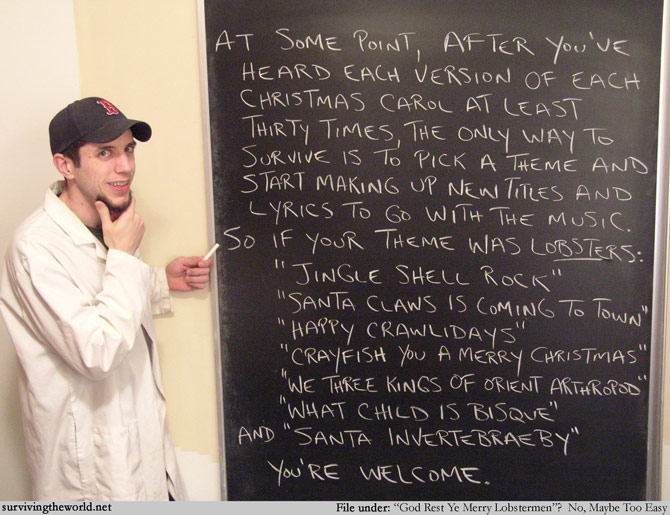 AT SOME POINT, AFTER YOU'VE
HEARD EACH VERSION OF EACH
CHRISTMAS CAROL AT LEAST
THIRTY TIMES, THE ONLY WAY TO
SURVIVE IS TO PICK A THEME AND
START MAKING UP NEW TITLES AND
LYRICS TO GO WITH THE MUSIC.
SO IF YOUR THEME WAS LOBSTERS:
"JINGLE SHELL ROCK"
"SANTA CLAWS IS COMING TO TOWN"
"HAPPY CRAWLIDAYS"
"CRAYFISH YOU A MERRY CHRISTMAS"
"WE THREE KINGS OF ORIENT ARTHROPOD"
"WHAT CHILD IS BISQUE"
AND "SANTA INVERTEBRAEBY"
YOU'RE WELCOME.
B
survivingtheworld.net
File under: "God Rest Ye Merry Lobstermen"? No, Maybe Too Easy